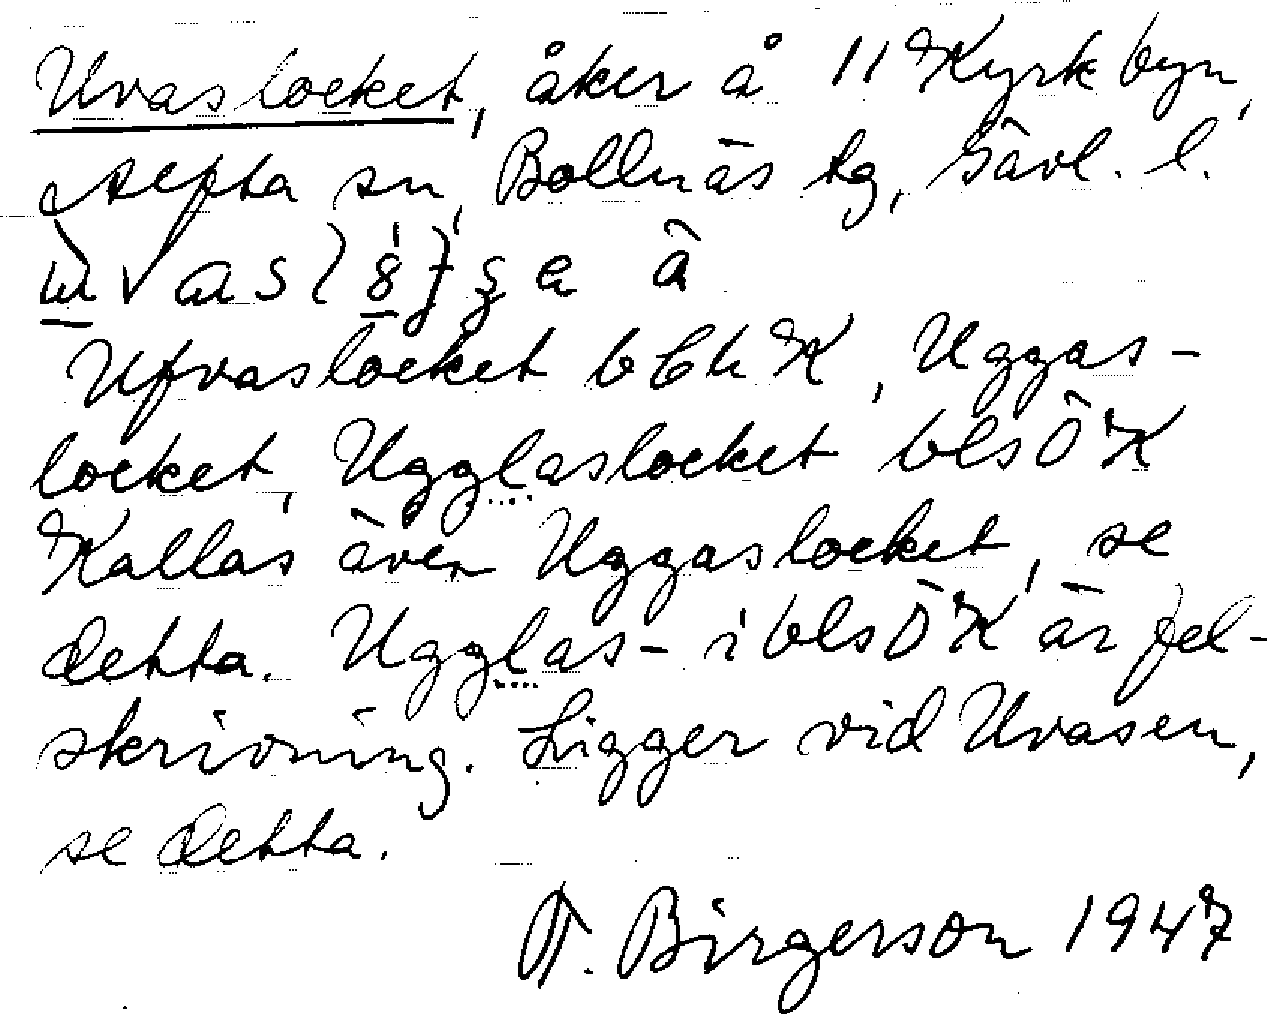 Uvaslocket, åker å 11 Kyrkbyn,
Alfta sn, Bollnäs tg, Gävl. l.
Ufvaslocket b Ch K, Uggas-
locket, Ugglaslocket bls Ö K
Kallas även Uggaslocket, se
detta. Ugglas- i bls Ö K är fel-
skrivning. Ligger vid Uvasen,
se detta.
Birgerson 1947